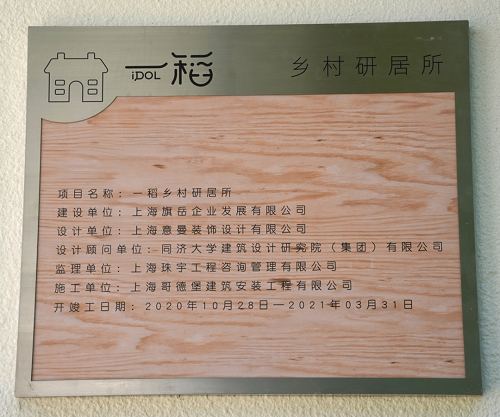 一稻 乡村研居所
iDOL
项目名称：一稻乡村研居所
建设单位：上海旗岳企业发展有限公司
设计单位：上海意曼装饰设计有限公司
设计顾问单位：同济大学建筑设计研究院（集团）有限公司
监理单位：上海珠宇工程咨询管理有限公司
施工单位：上海哥德堡建筑安装工程有限公司
开竣工日期：2020年10月28日—2021年03月31日